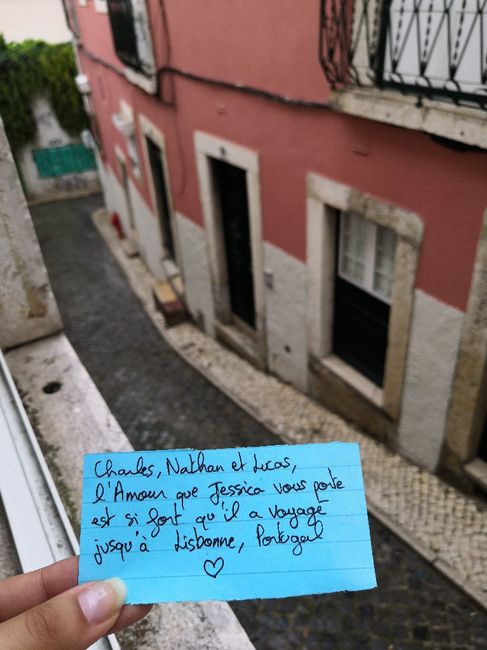 Charles, Nathan et Lucas,
l'Amour que Jessica vous porte
est si fort qu'il a voyagé
jusqu'à Lisbonne, Portugal